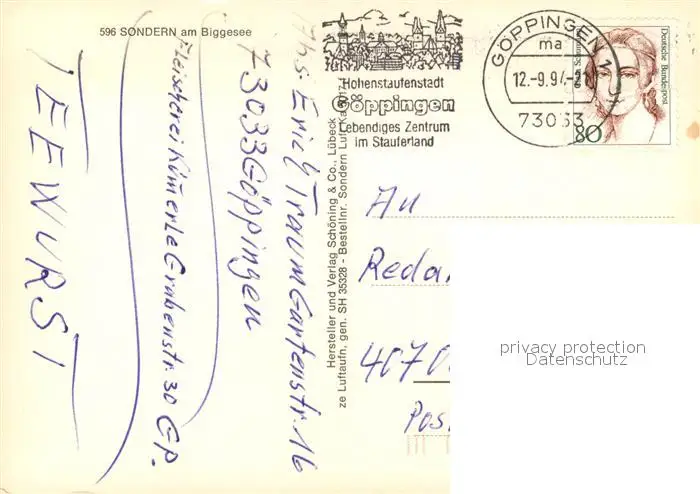 596 SONDERN am Biggesee
Hohenstaufenstadt
Göppingen
Lebendiges Zentrum
im Stauferland
GÖPPINGEN 1
ma
12.-9.94-
73033
Deutsche Bundespost
80
Hersteller und Verlag Schöning & Co., Lübeck
ze Luftaufn, gen. SH 35328 - Bestellnr. Sondern Luft Ka
Abs. Erich Traum Gartenstr. 16
73033 Göppingen
Fleischerei Kümerle Grabenstr. 30 GP.
TEEWURST
An
Redak
4070
Pos
privacy protection
Datenschutz